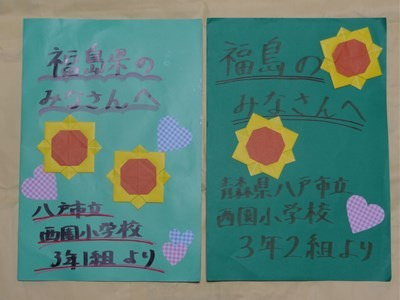 福島県の
みなさんへ
八戸市立
西園小学校
3年1組より
福島の
みなさんへ
青森県八戸市立
西園小学校
3年2組より